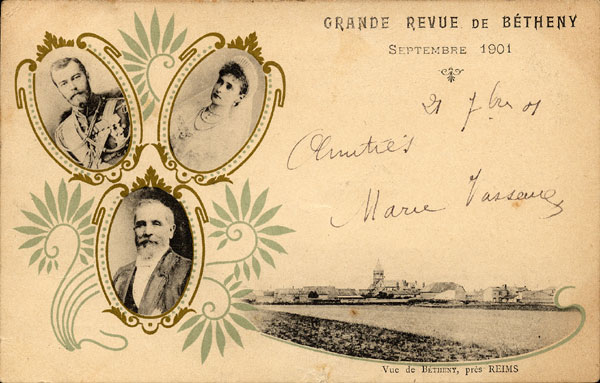 GRANDE REVUE DE BÉTHENY
SEPTEMBRE 1901
21 7bre 01
Amitiés
Marie
Vue de BÉTHENY, près REIMS